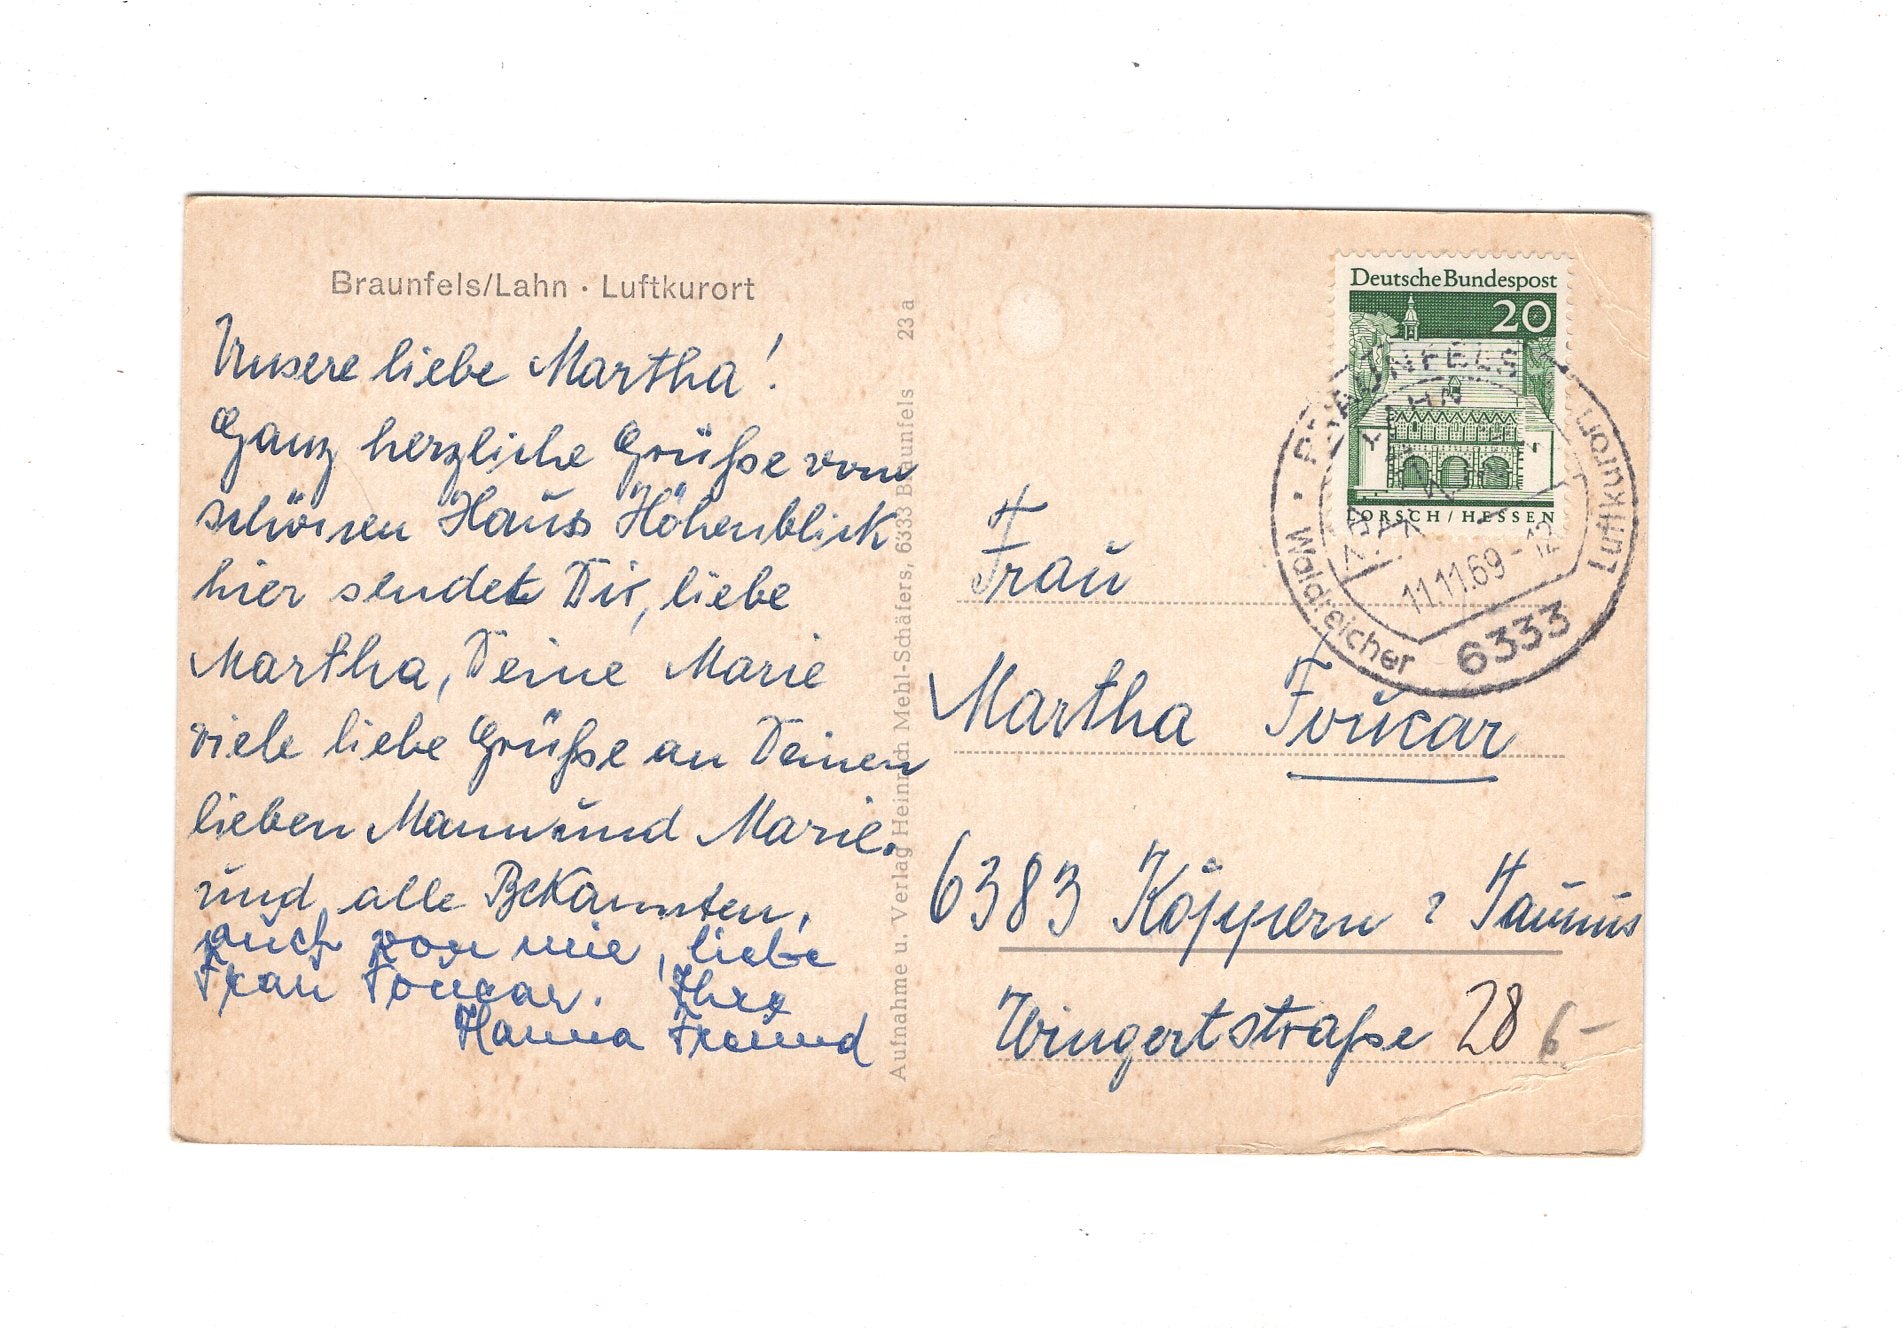 Braunfels/Lahn · Luftkurort
Unsere liebe Martha!
Ganz herzliche Grüße vom
schönen Haus Höhenblick
hier sendet Dir, liebe
Martha, Deine Marie
viele liebe Grüße an Deinen
lieben Mann und Marie.
und alle Bekannten,
auch von mir, liebe
Frau Foucar. Ihre
Hanna Freund
Aufnahme u. Verlag Heinrich Mehl-Schäfers, 6333 Braunfels 23a
Deutsche Bundespost
20
LORSCH / HESSEN
BRAUNFELS
LAHN
11.11.69-12
6333
Waldreicher
Luftkurort
Frau
Martha Foucar
6383 Köppern Taunus
Wingertstraße 28
6-